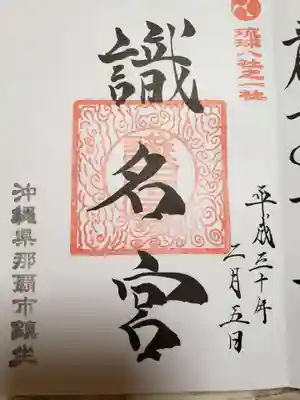 琉球八社之一社
識名宮
平成三十年
二月五日
沖縄県那覇市鎮坐